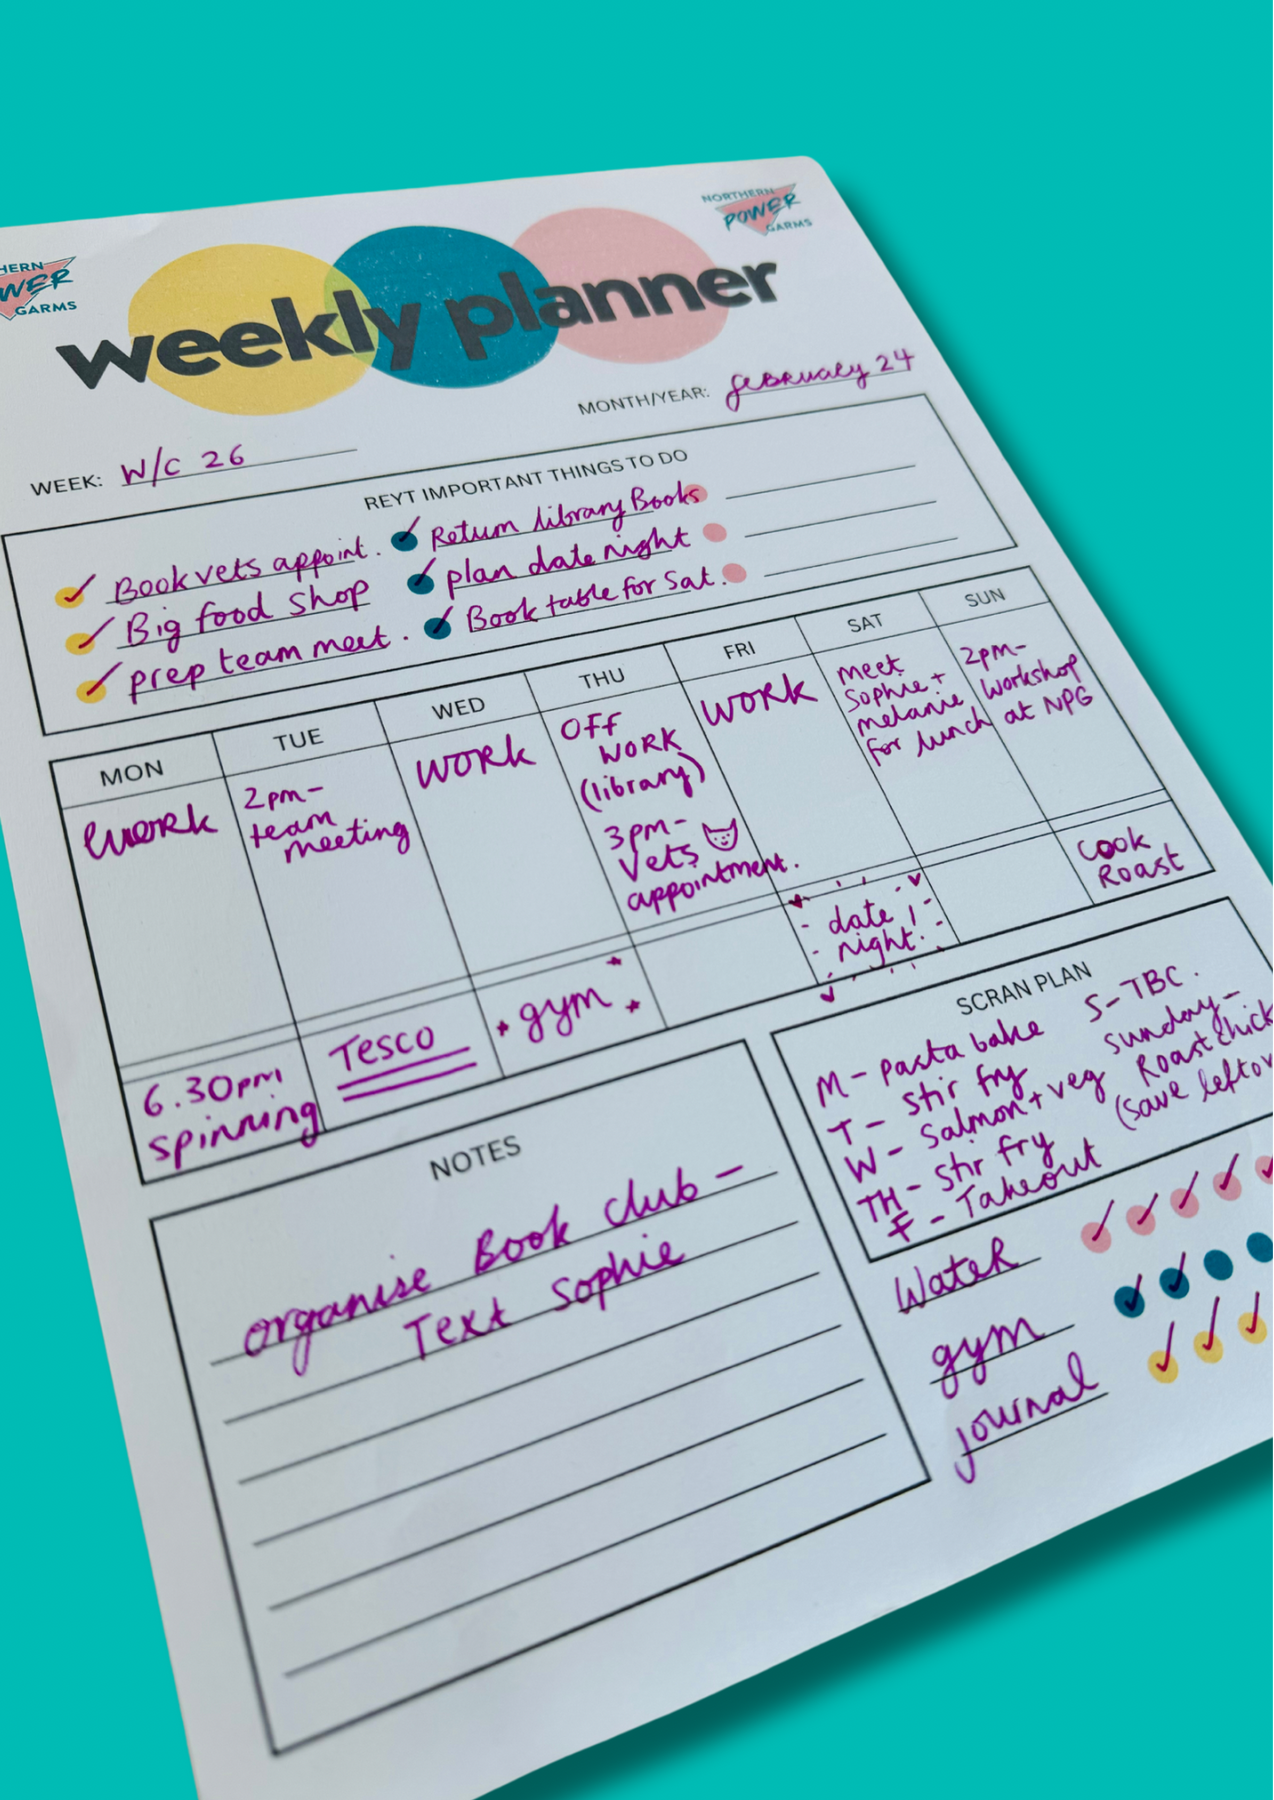 HERN
WER
GARMS
NORTHERN
POWER
GARMS
weekly planner
MONTH/YEAR: February 24
WEEK: W/C 26
REYT IMPORTANT THINGS TO DO
Book vets appoint.
Big food shop
prep team meet.
Return library Books
plan date night
Book table for Sat.
MON
work
6.30pm
spinning
TUE
2pm-
team
meeting
TESCO
WED
work
gym
THU
OFF
WORK
(library)
3pm-
Vets
appointment.
FRI
work
SAT
meet
Sophie +
melanie
for lunch
date
night.
SUN
2pm-
Workshop
at NPG
Cook
Roast
NOTES
organise Book club -
Text Sophie
SCRAN PLAN
M - pasta bake
T - stir fry
W - Salmon + veg
TH - stir fry
F - Takeout
S - TBC.
Sunday -
Roast chick
(save leftov
Water
gym
journal